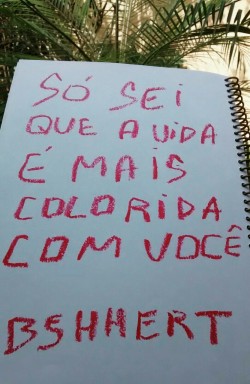 SÓ SEI
QUE A VIDA
É MAIS
COLORIDA
COM VOCÊ
BSHHERT